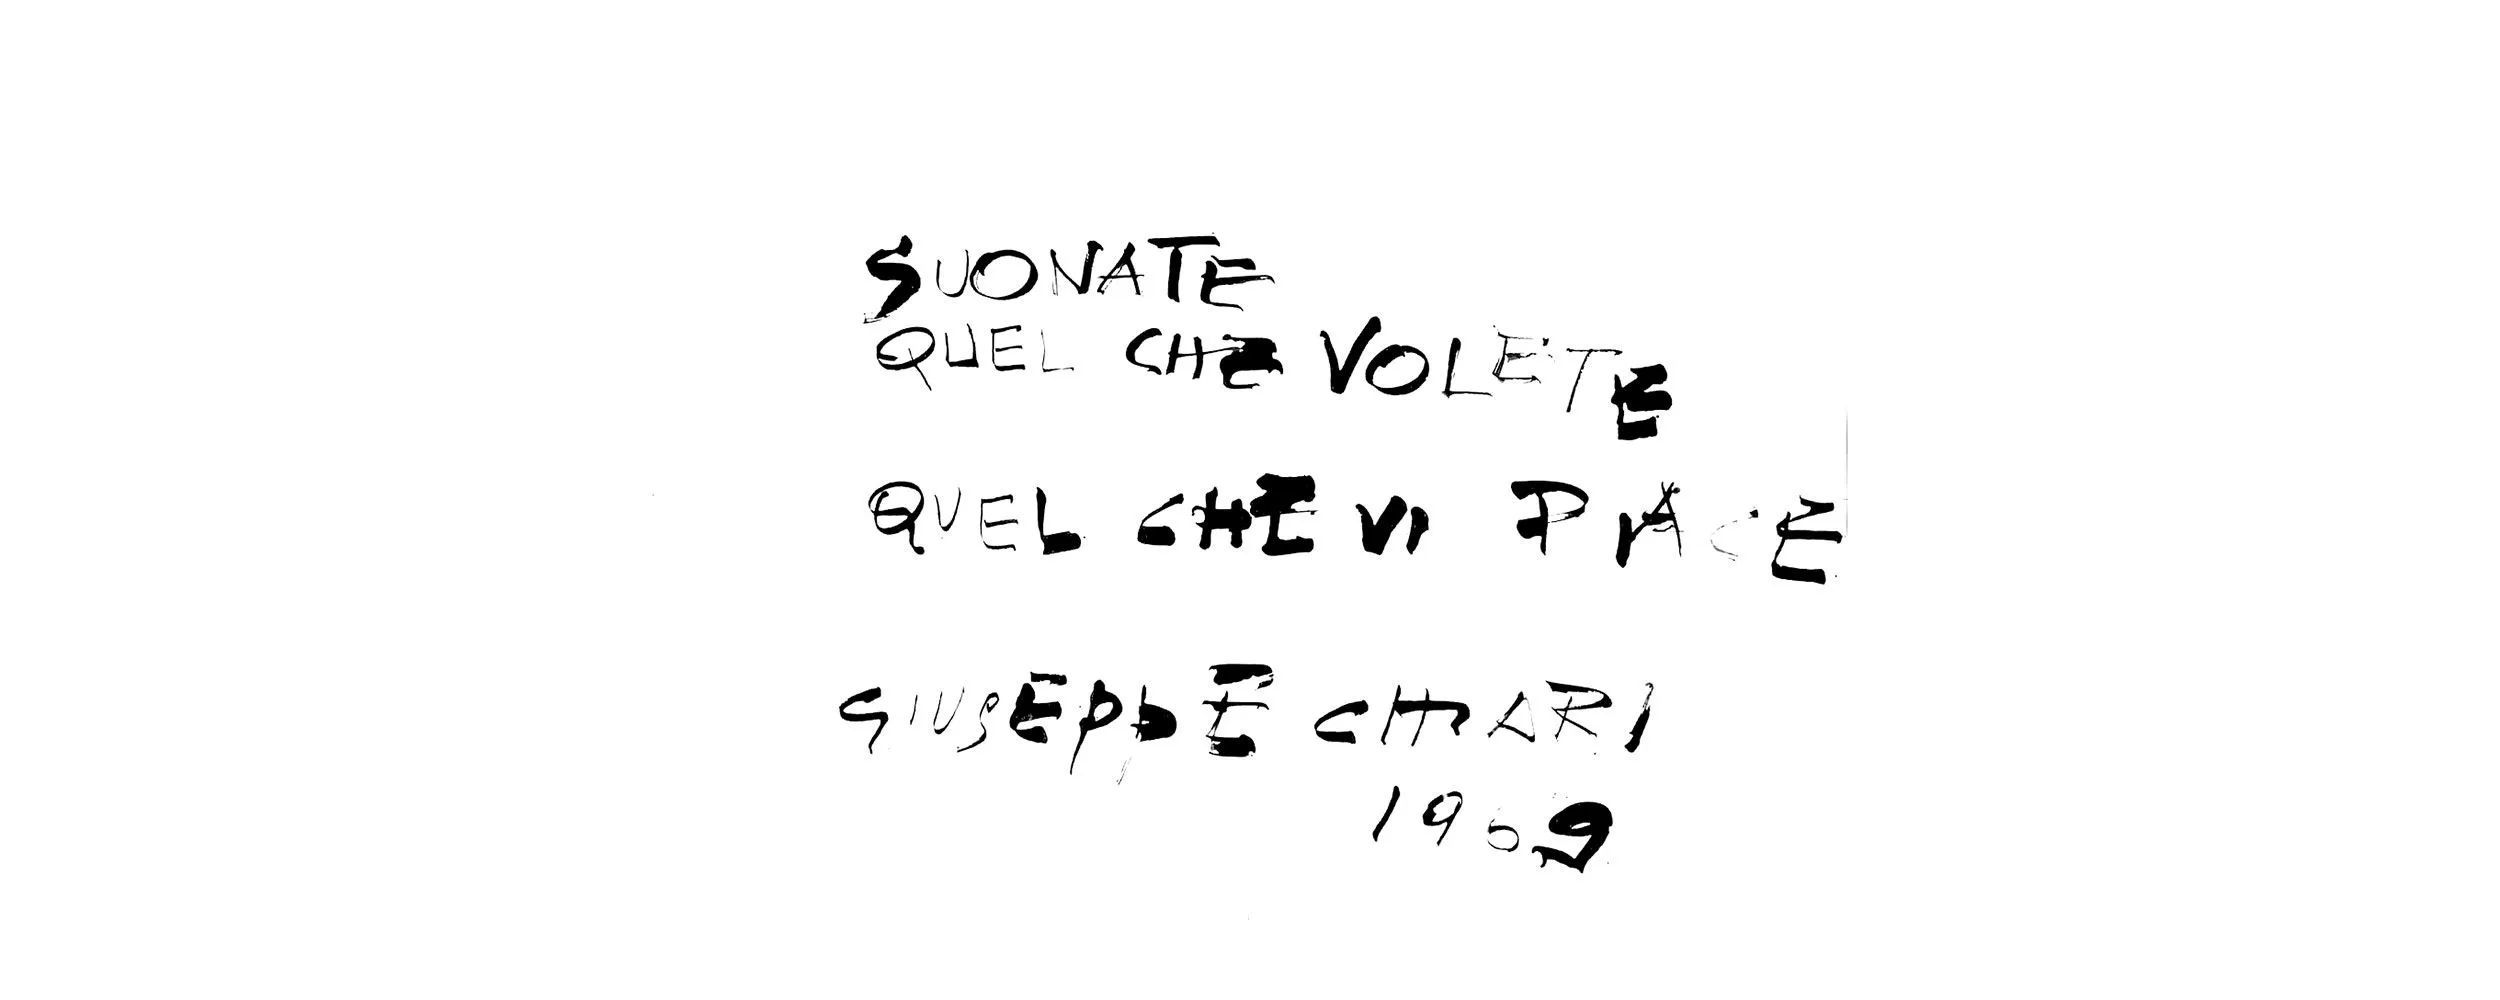 SUONATE
QUEL CHE VOLETE
QUEL CHE VI PIACE
GIUSEPPE CHIARI
1969